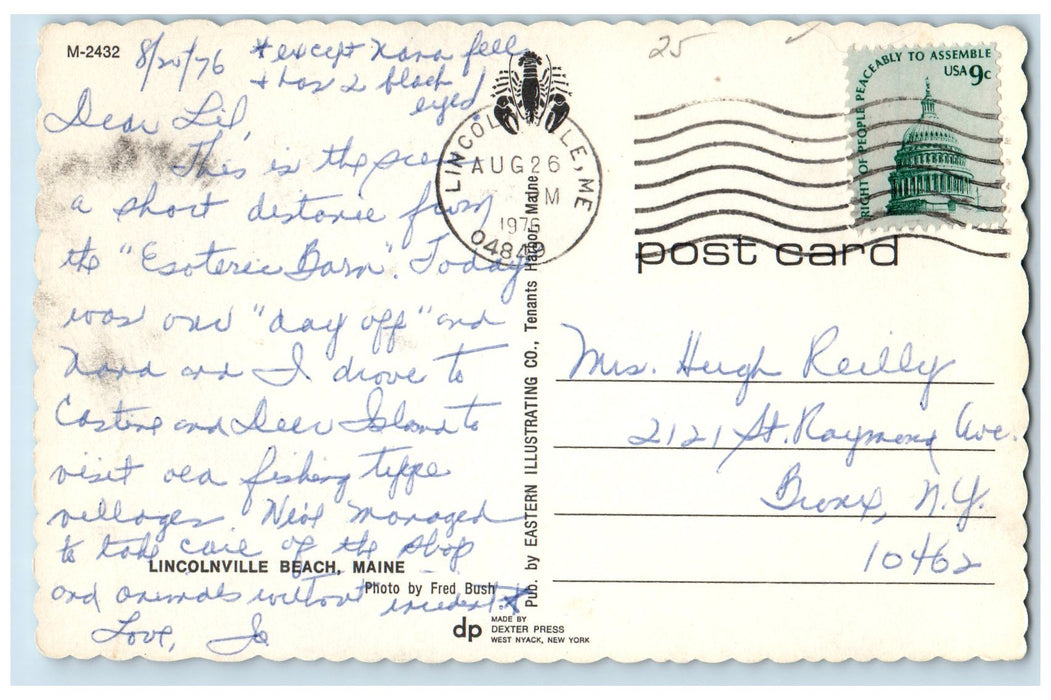 M-2432
8/25/76
*except Nana fell
+ has 2 black
eyes!
Dear Lil,
This is the scene
a short distance from
the "Esoteric Barn". Today
was our "day off" and
Nana and I drove to
Castine and Deer Island to
visit old fishing type
villages. We've managed
to take care of the shop
and animals without incident.*
Love, Jo
LINCOLNVILLE BEACH, MAINE
Photo by Fred Bush
dp
MADE BY
DEXTER PRESS
WEST NYACK, NEW YORK
Pub. by EASTERN ILLUSTRATING CO., Tenants Harbor, Maine
LINCOLNVILLE, ME
AUG 26
M
1976
04849
25
RIGHT OF PEOPLE PEACEABLY TO ASSEMBLE
USA 9c
post card
Mrs. Hugh Reilly
2121 St. Raymond Ave.
Bronx, N.Y.
10462